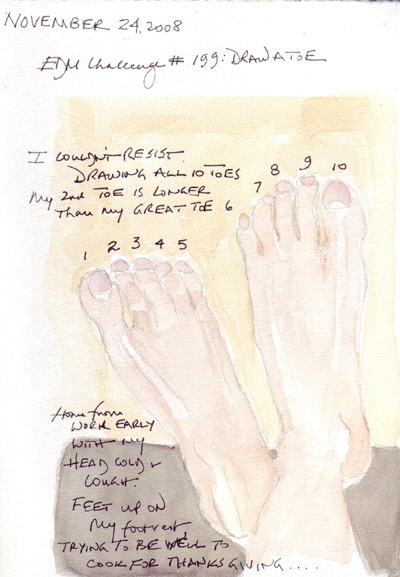 NOVEMBER 24, 2008
EDM Challenge # 199: DRAW A TOE
I COULDN'T RESIST
DRAWING ALL 10 TOES
My 2nd TOE IS LONGER
Than my GREAT TOE
1 2 3 4 5
6 7 8 9 10
Home from
WORK EARLY
WITH MY
HEAD COLD &
COUGH.
FEET UP ON
My footrest
TRYING TO BE WELL TO
COOK FOR THANKSGIVING....